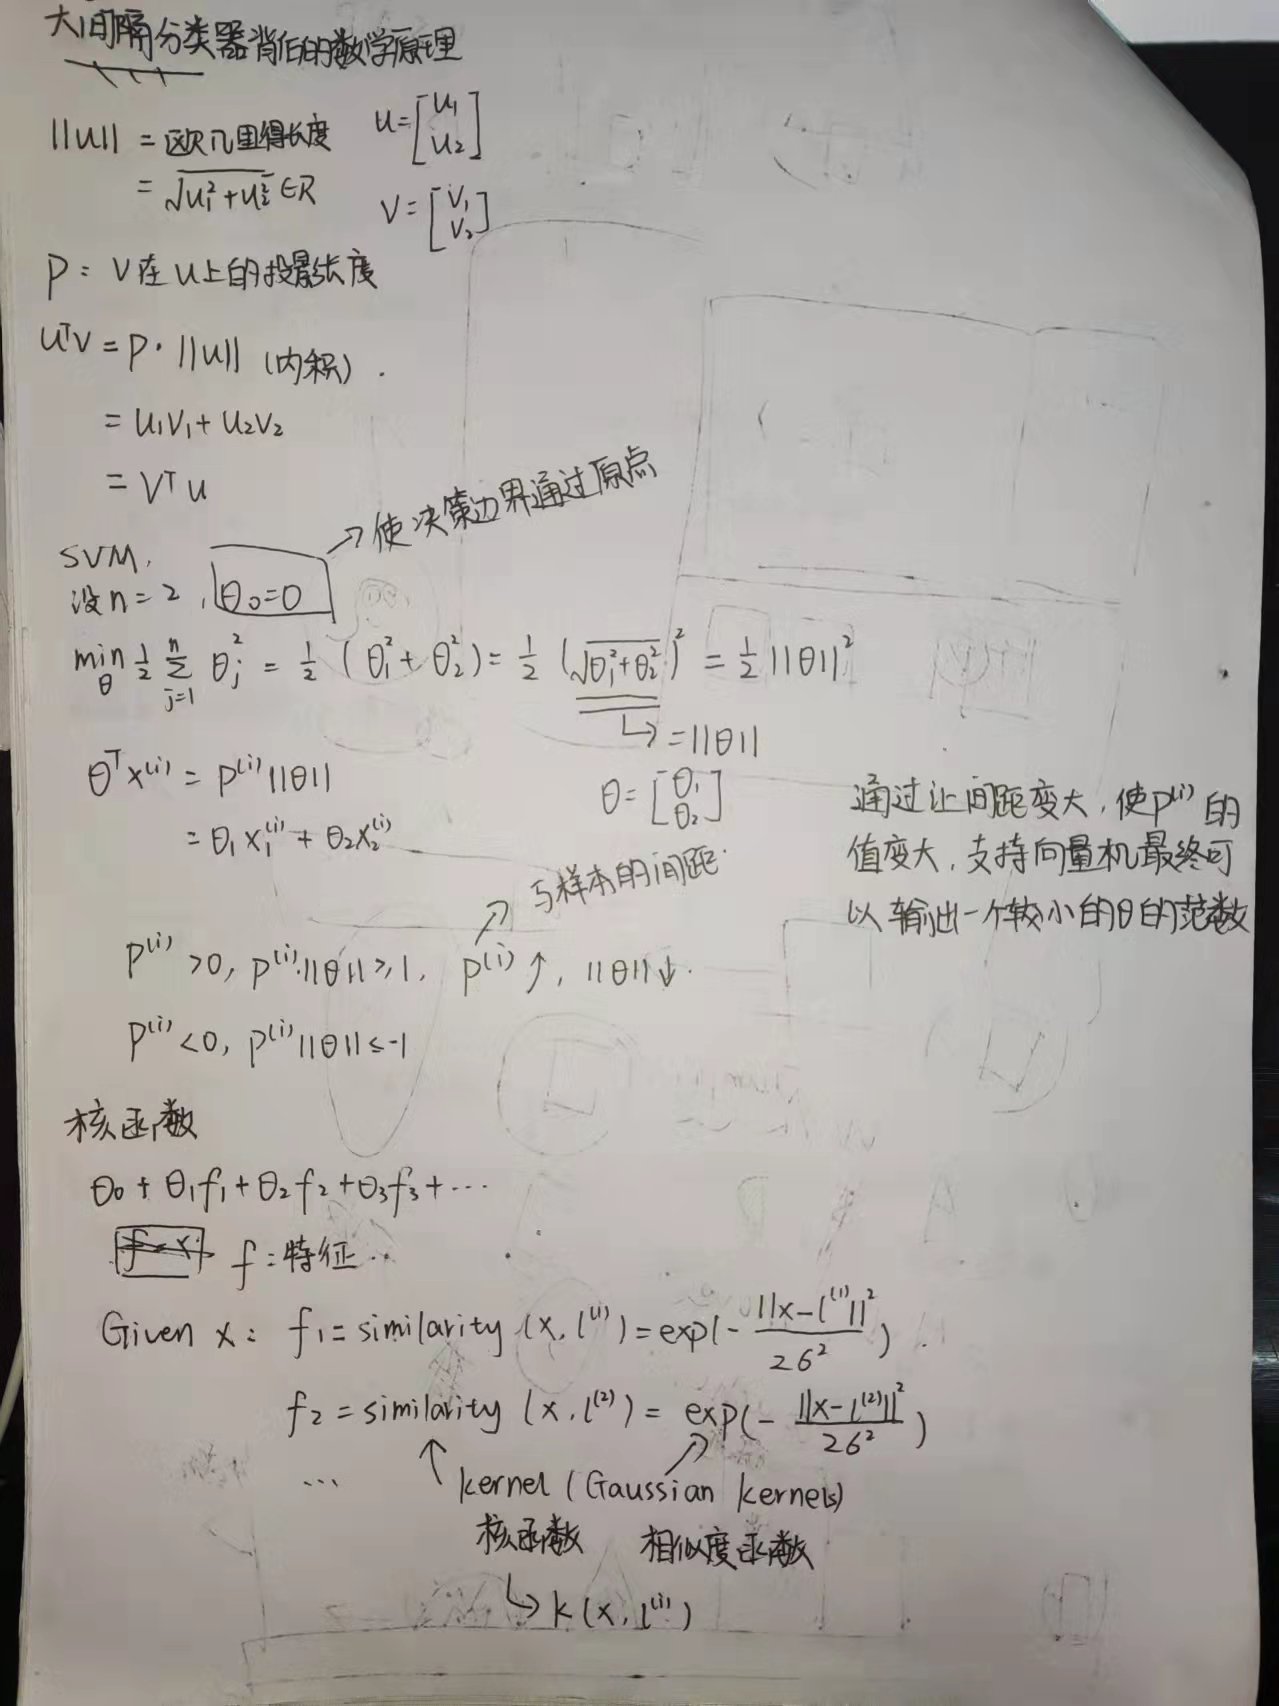 大间隔分类器背后的数学原理
||u|| = 欧几里得长度
= √u₁²+u₂² ∈R
u=[u₁ u₂]
V=[V₁ V₂]
P: V在u上的投影长度
uᵀv = P·||u|| (内积).
= u₁v₁+u₂v₂
= Vᵀu
→使决策边界通过原点
SVM,
设n=2, θ₀=0
min_θ ½ Σ_{j=1}^{n} θⱼ² = ½ (θ₁²+θ₂²) = ½ (√θ₁²+θ₂²)² = ½||θ||²
↳=||θ||
θᵀx⁽ⁱ⁾ = P⁽ⁱ⁾||θ||
θ=[θ₁ θ₂]
= θ₁x₁⁽ⁱ⁾ + θ₂x₂⁽ⁱ⁾
通过让间距变大,使P⁽ⁱ⁾的
值变大,支持向量机最终可
以输出一个较小的θ的范数
↗与样本的间距
P⁽ⁱ⁾>0, P⁽ⁱ⁾·||θ||≥1, P⁽ⁱ⁾↑, ||θ||↓.
P⁽ⁱ⁾<0, P⁽ⁱ⁾||θ||≤-1
核函数
θ₀+θ₁f₁+θ₂f₂+θ₃f₃+…
f:特征…
Given x: f₁=similarity(x,l⁽¹⁾)=exp(-||x-l⁽¹⁾||²/2б²).
f₂=similarity(x,l⁽²⁾)=exp(-||x-l⁽²⁾||²/2б²)
… ↑ kernel (Gaussian kernels)
核函数 相似度函数
↳k(x,l⁽ⁱ⁾)